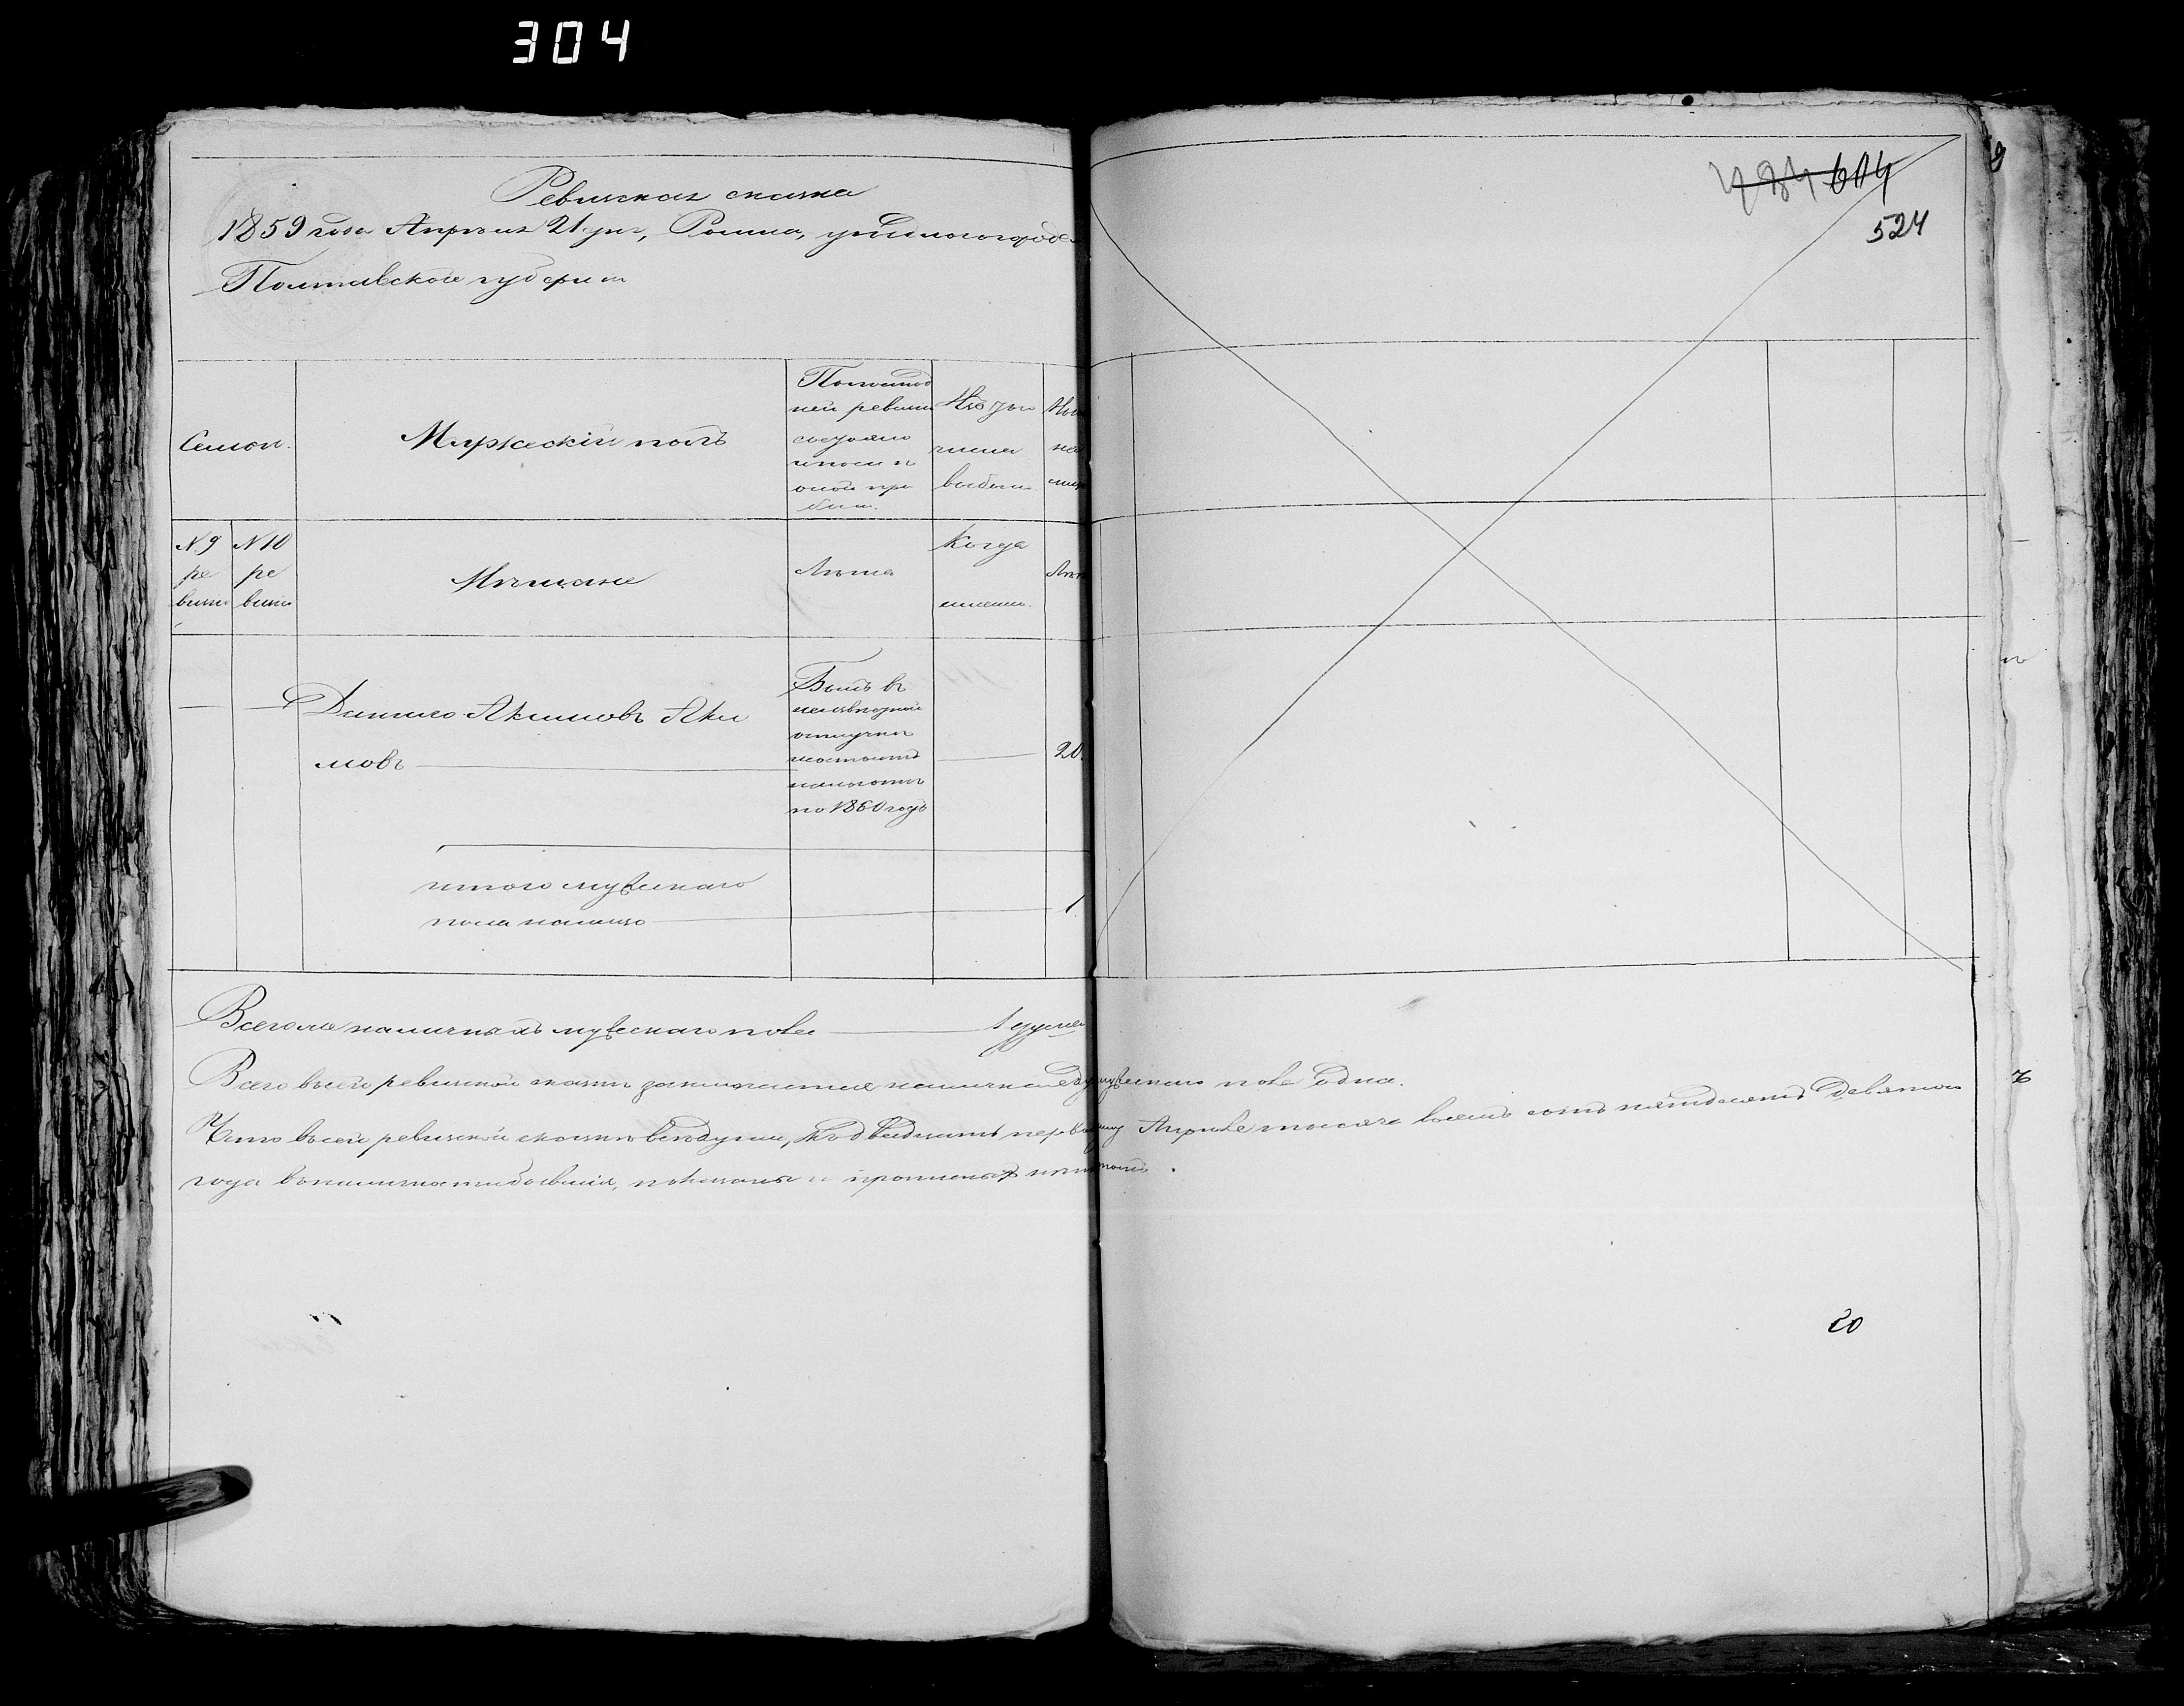 304
Ревизская сказка
1859 года Апреля 21 дня, Ромна, уезднаго города
Полтавской губернии
484 604
524
Семьи.
Мужескій полъ
По послед
ней ревизіи
состояло
и после
оной при
было.
Изъ того
числа
выбыло
Ныне
на
лицо
N 9 ре визіи
N 10 ре визіи
Мещане
Лета
Когда
именно.
Лета
Данило Акимовъ Аки
мовъ
Былъ въ
неизвестной
отлучке
по 1860 годъ
20.
итого мужескаго
пола налицо
1.
Всего же наличныхъ мужескаго пола 1 душа
Всего въ сей ревизской сказке заключается наличная душа мужескаго пола одна.
Что въ сей ревизской сказке все души, по двадцать первому Апреля тысяча восемь сотъ пятьдесятъ девятаго
года въ наличности бывшія, показаны и прописныхъ нетъ.
20